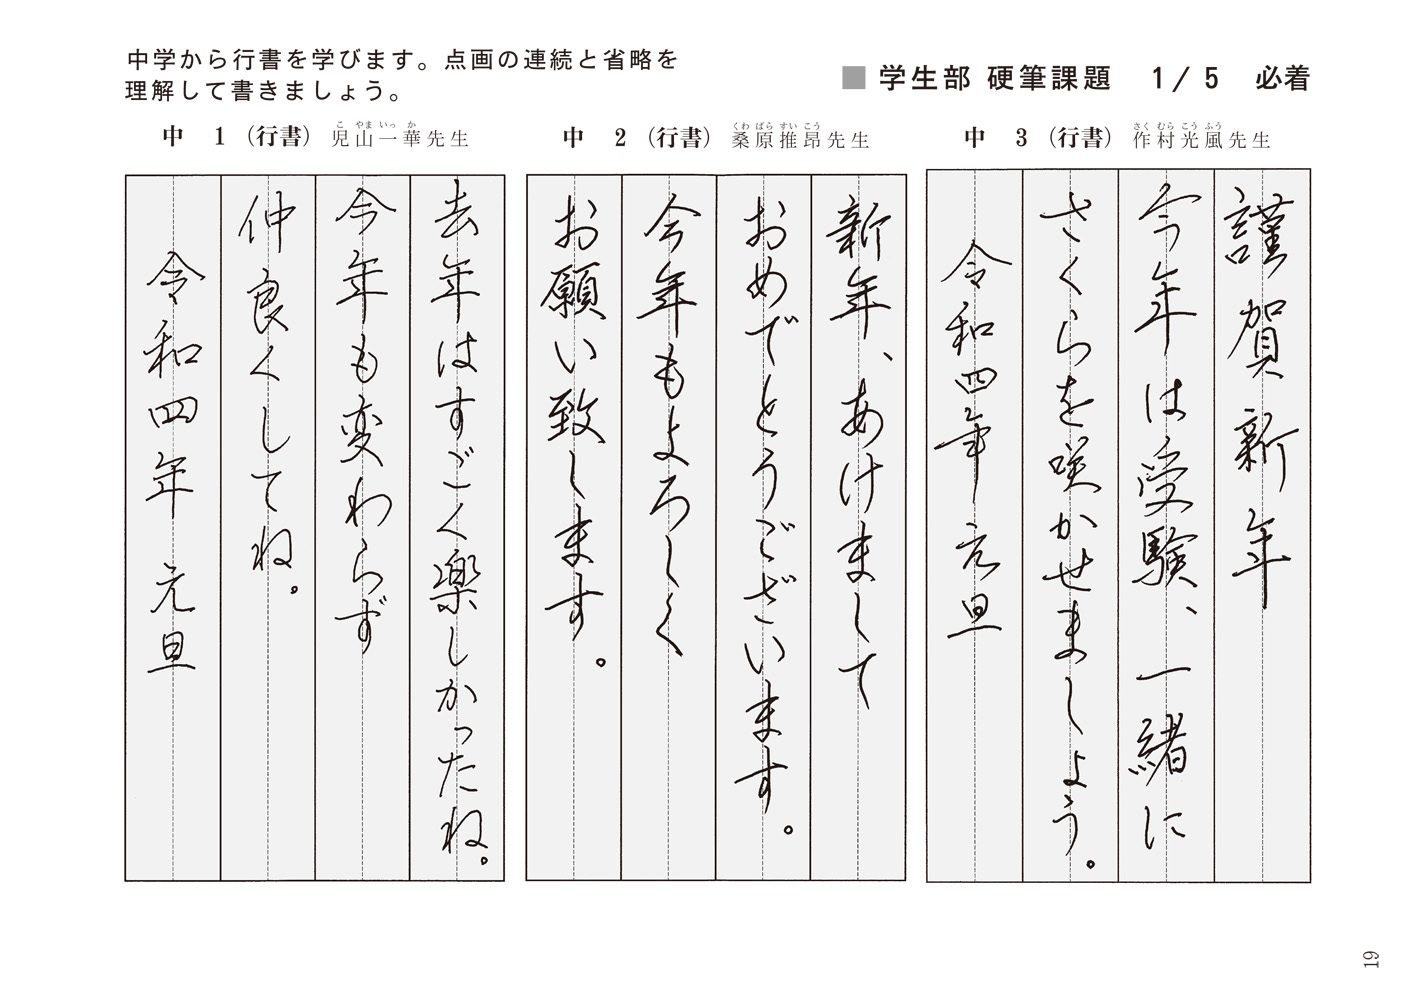 中学から行書を学びます。点画の連続と省略を
理解して書きましょう。
■ 学生部 硬筆課題 1/5 必着
中 1 (行書) 児山一華先生
こ やま いっ か
去年はすごく楽しかったね。
今年も変わらず
仲良くしてね。
令和四年 元旦
中 2 (行書) 桑原推昂先生
くわ ばら すい こう
新年、あけまして
おめでとうございます。
今年もよろしく
お願い致します。
中 3 (行書) 作村光風先生
さく むら こう ふう
謹賀新年
今年は受験、一緒に
さくらを咲かせましょう。
令和四年 元旦
19